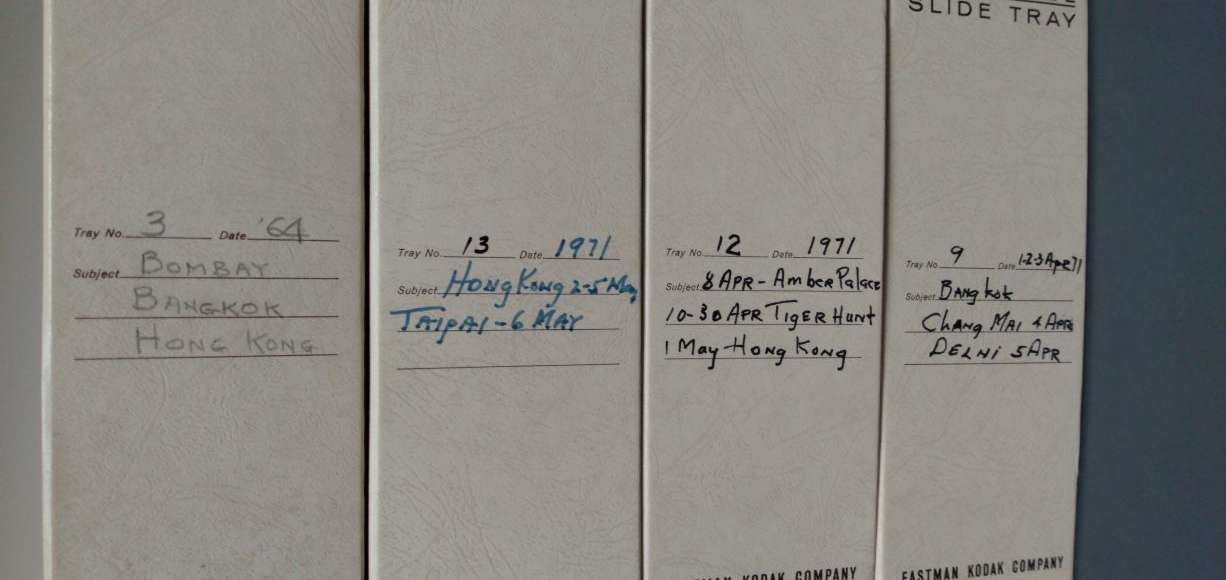 Tray No. 3 Date '64
Subject BOMBAY
BANGKOK
HONG KONG
Tray No. 13 Date 1971
Subject HONG KONG 2-5 May
TAIPAI - 6 MAY
Tray No. 12 Date 1971
Subject 8 APR - AMBER PALACE
10-30 APR TIGER HUNT
1 May - HONG KONG
KODAK COMPANY
SLIDE TRAY
Tray No. 9 Date 1-2-3 Apr 71
Subject BANGkok
CHANG MAI 4 APR
DELHI 5 APR
EASTMAN KODAK COMPANY